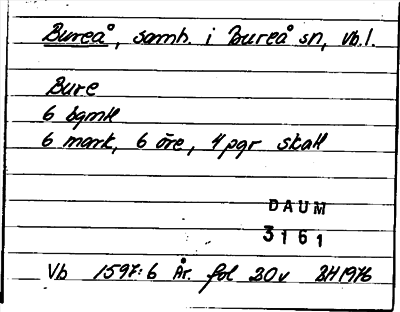 Bureå, samh. i Bureå sn, Vb.l.
Bure
6 bgmtl
6 mark, 6 öre, 4 pgr skatt
DAUM
3161
Vb 1597:6 År. fol 20v BH 1976